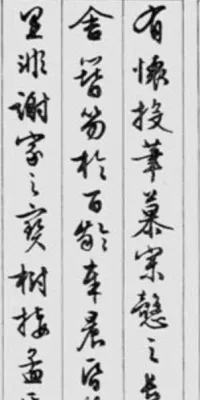 有懷投筆慕宗愨之長
舍簪笏於百齡奉晨昏
里非謝家之寶樹接孟